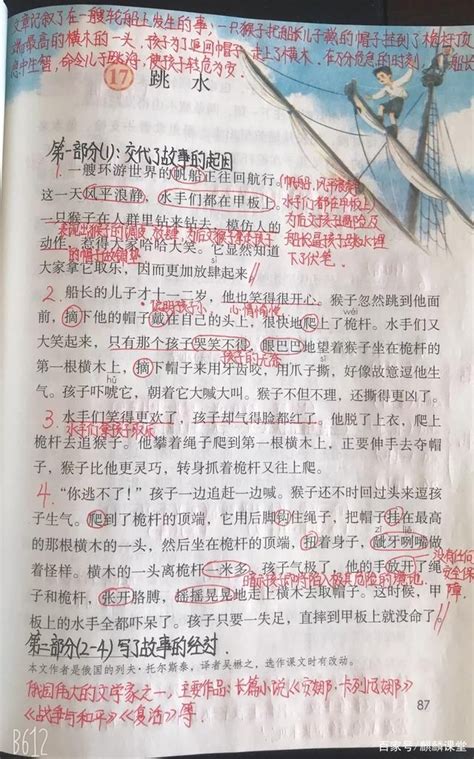 文章记叙了在一艘轮船上发生的事：一只猴子把船长儿子戴的帽子挂到了桅杆顶
端最高的横木的一头，孩子为了追回帽子，走上了横木。在万分危急的时刻，船长
急中生智，命令儿子跳海，使孩子转危为安。
17 跳水
第一部分(1)：交代了故事的起因
1. 一艘环游世界的帆船正往回航行。
这一天风平浪静，水手们都在甲板上。
一只猴子在人群里钻来钻去，模仿人的
动作，惹得大家哈哈大笑。它显然知道
大家拿它取乐，因而更加放肆起来。
水手们都在甲板上
为后文
船长逼孩子跳水埋
下了伏笔。
2. 船长的儿子才十一二岁，他也笑得很开心。猴子忽然跳到他面
说明孩子小 心情愉悦
wéi
前，摘下他的帽子戴在自己的头上，很快地爬上了桅杆。水手们又
大笑起来，只有那个孩子哭笑不得，眼巴巴地望着猴子坐在桅杆的
孩子的无奈
第一根横木上，摘下帽子来用牙齿咬，用爪子撕，好像故意逗他生
hǔ
气。孩子吓唬它，朝着它大喊大叫。猴子不但不理，还撕得更凶了。
3. 水手们笑得更欢了，孩子却气得脸都红了。他脱了上衣，爬上
水手们拿孩子取乐
桅杆去追猴子。他攀着绳子爬到第一根横木上，正要伸手去夺帽
子，猴子比他更灵巧，转身抓着桅杆又往上爬。
4. “你逃不了！”孩子一边追赶一边喊。猴子还不时回过头来逗孩
子生气。爬到了桅杆的顶端，它用后脚钩住绳子，把帽子挂在最高
zī
的那根横木的一头，然后坐在桅杆的顶端，扭着身子，龇牙咧嘴做
着怪样。横木的一头离桅杆一米多。孩子气极了，他的手放开了绳
没有任何
安全保
障
暗示孩子即将陷入极其危险的境地
子和桅杆，张开胳膊，摇摇晃晃地走上横木去取帽子。这时候，甲
板上的水手全都吓呆了。孩子只要一失足，直摔到甲板上就没命了。
第二部分(2-4)写了故事的经过.
本文作者是俄国的列夫·托尔斯泰，译者吴樾之，选作课文时有改动。
俄国伟大的文学家之一，主要作品：长篇小说《安娜·卡列尼娜》
《战争与和平》《复活》等.
87
B612
百家号/麒麟课堂